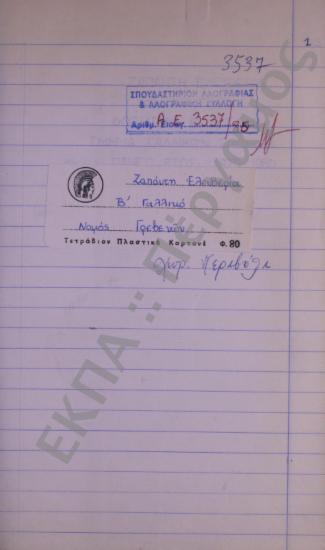 1
3537
ΣΠΟΥΔΑΣΤΗΡΙΟΝ ΛΑΟΓΡΑΦΙΑΣ
& ΛΑΟΓΡΑΦΙΚΗ ΣΥΛΛΟΓΗ
Αριθμ. Εισαγ. Α.Ε. 3537/95
Ζαπάντη Ελευθερία
Β' Γαλλικό
Νομός Γρεβενών
Τετράδιον Πλαστικό Καρτονέ Φ. 80
χωρ. Περιβόλι
ΕΚΠΑ :: Πέργαμος